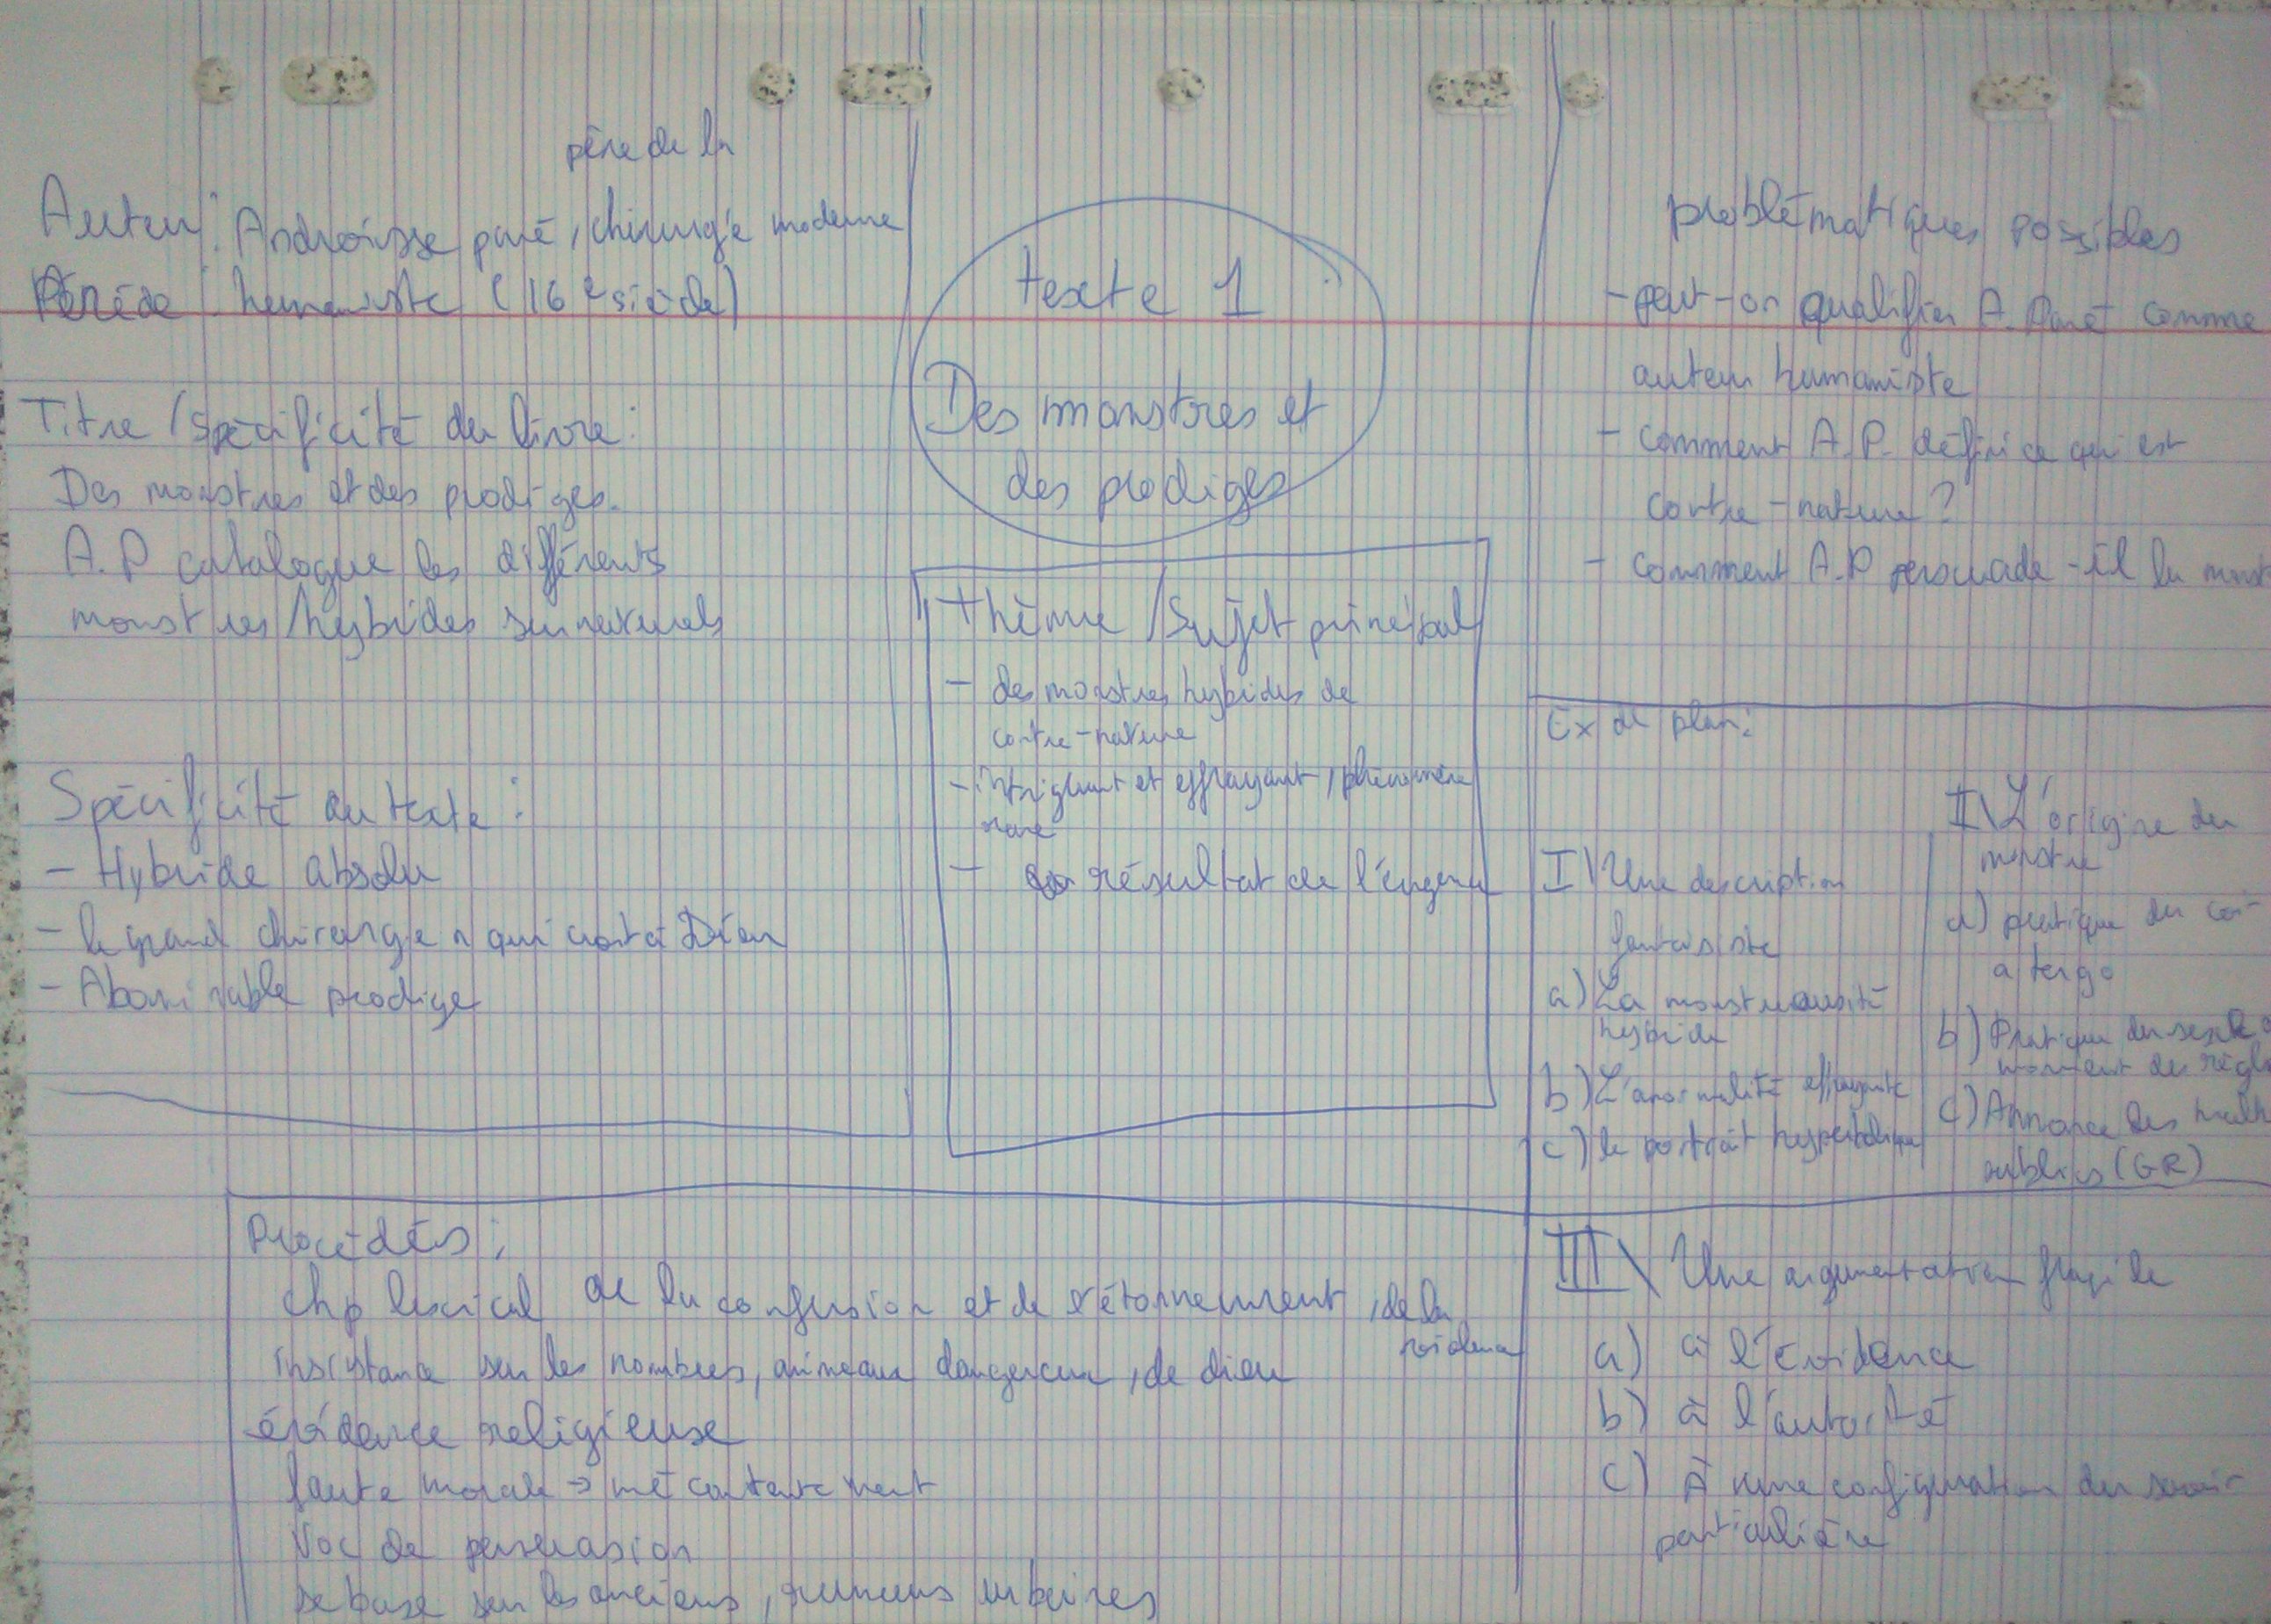 père de la
Auteur : Androisse paré, chirurgie moderne
Période : humaniste (16e siècle)
Titre / Spécificité du livre :
Des monstres et des prodiges.
A.P catalogue les différents
monstres / hybrides surnaturels
Spécificité du texte :
- Hybride absolu
- le grand chirurgien qui croit à Dieu
- Abominable prodige
texte 1
Des monstres et
des prodiges
thème / Sujet principal
- des monstres hybrides de
contre-nature
- intrigant et effrayant, phénomène
rare
- résultat de
problématiques possibles
- peut-on qualifier A. Paré comme
auteur humaniste
- comment A.P. défini ce qui est
contre-nature ?
- comment A.P persuade-il la
Ex de plan :
I\ Une description
fantaisiste
a) La monstruosité
hybride
b) L'anormalité effrayante
c) le portrait hyperbolique
II\ L'origine du
monstre
a) pratique du coï-
a tergo
b) Pratique du sexe
moment des règles
c) Annonce des
publics (GR)
III\ Une argumentation fragile
a) à l'évidence
b) à l'autorité
c) À une configuration du savoir
particulière
Procédés :
chp lexical de la confusion et de l'étonnement, de la
insistance sur les nombres, animaux dangereux, de dieu
évidence religieuse
faute morale → mécontentement
Voc de persuasion
se base sur les anciens, rumeurs urbaines